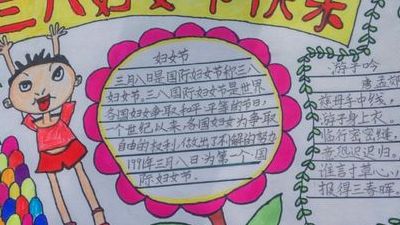 三八妇女节快乐
妇女节
三月八日是国际妇女节称三八
妇女节。三八国际妇女节是世界
各国妇女争取和平、平等的节日，
一个世纪以来，各国妇女为争取
自由的权利做出了不懈的努力
1991年三月八日为第一个国
际妇女节.
游子吟
唐 孟郊
慈母手中线，
游子身上衣。
临行密密缝，
意恐迟迟归。
谁言寸草心，
报得三春晖。